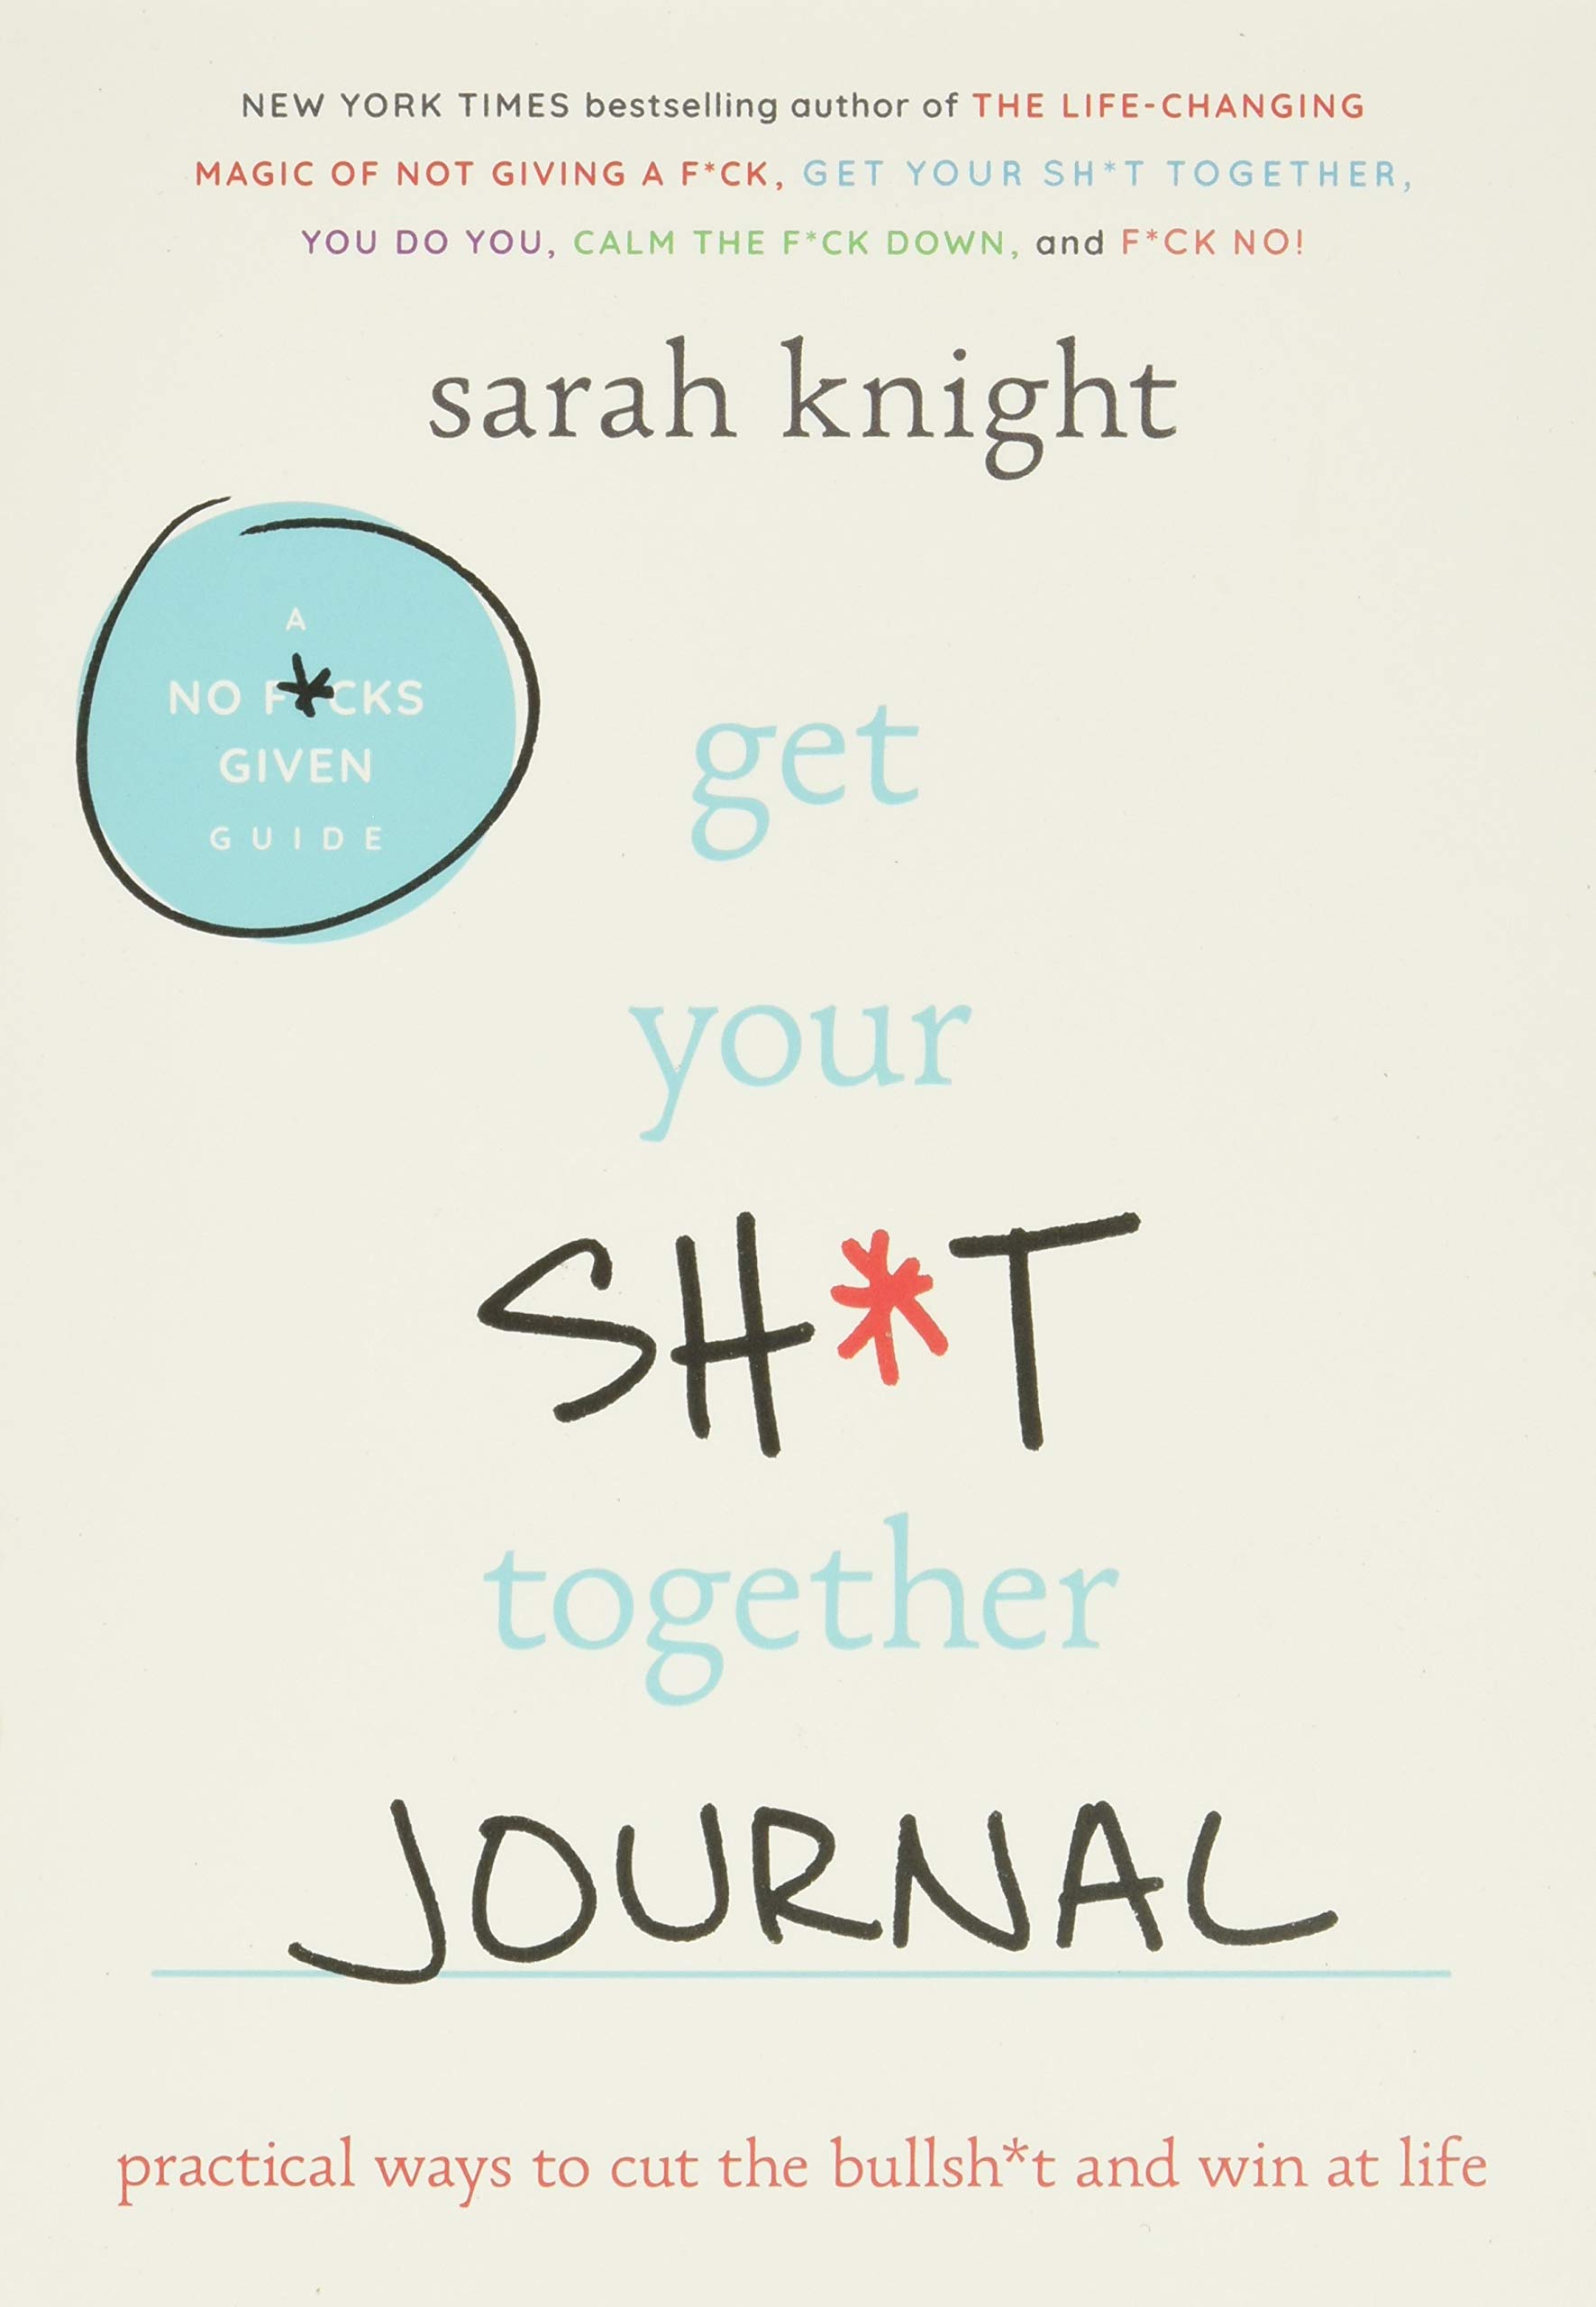 NEW YORK TIMES bestselling author of THE LIFE-CHANGING
MAGIC OF NOT GIVING A F*CK, GET YOUR SH*T TOGETHER,
YOU DO YOU, CALM THE F*CK DOWN, and F*CK NO!
sarah knight
A
NO F*CKS
GIVEN
GUIDE
get
your
SH*T
together
JOURNAL
practical ways to cut the bullsh*t and win at life